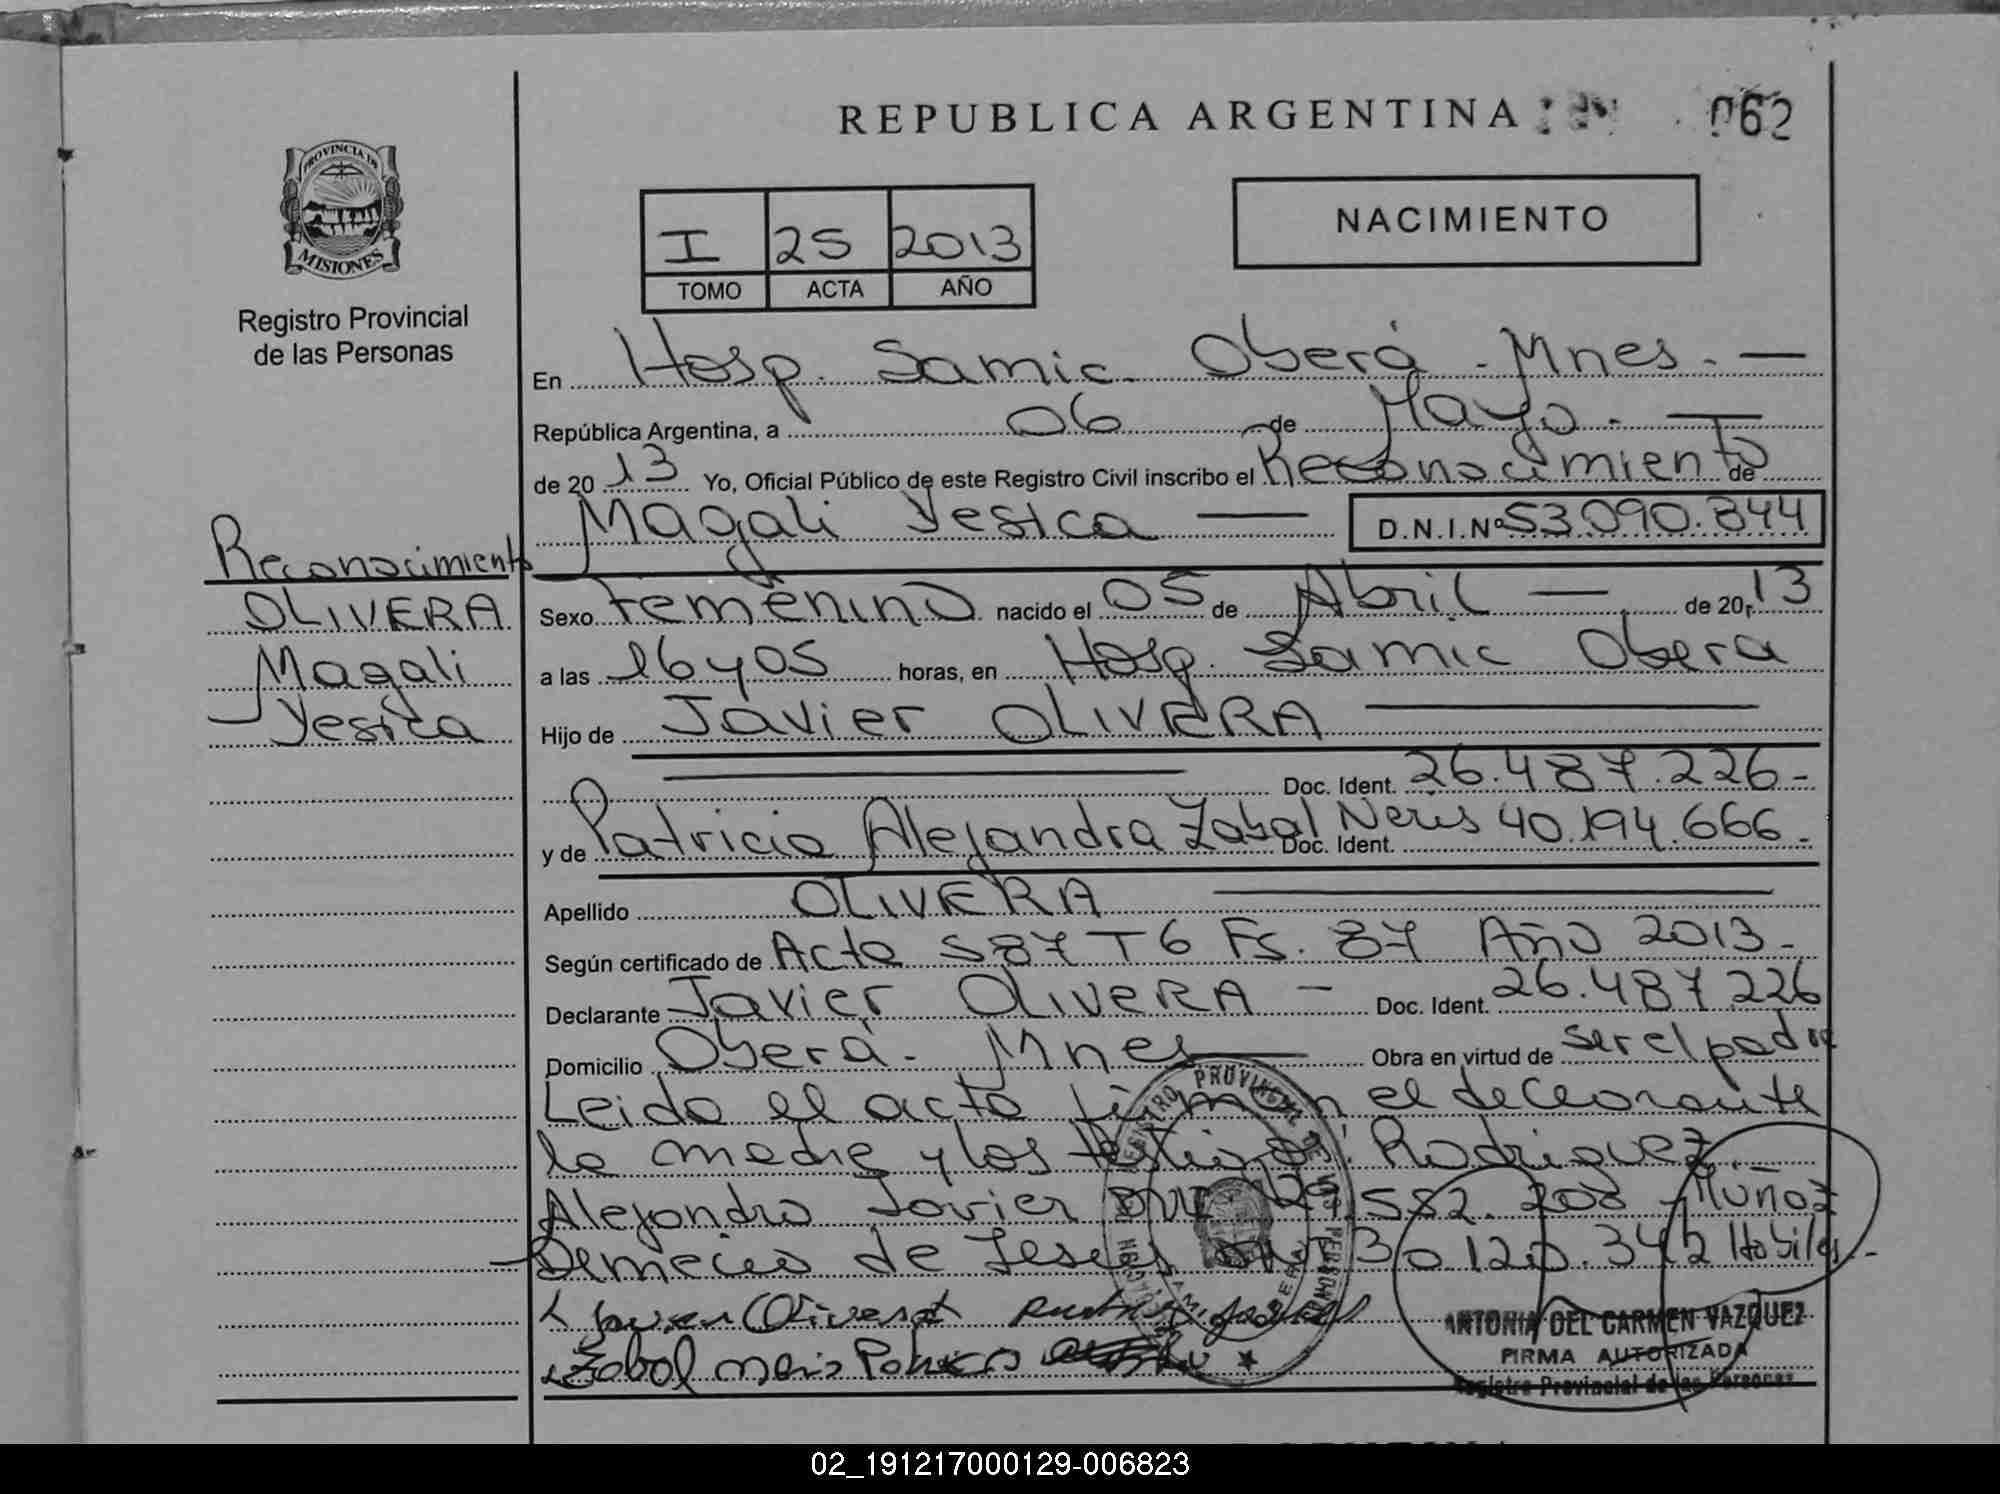 REPUBLICA ARGENTINA
062
PROVINCIA DE
MISIONES
Registro Provincial
de las Personas
I 25 2013
TOMO ACTA AÑO
NACIMIENTO
En Hosp. Samic Oberá - Mnes. —
República Argentina, a 06 de Mayo. —
de 2013 Yo, Oficial Público de este Registro Civil inscribo el Reconocimiento de
Magali Yesica — D.N.I.Nº 53.090.844
Reconocimiento
OLIVERA
Magali
Yesica
Sexo Femenino nacido el 05 de Abril — de 2013
a las 16 y 05 horas, en Hosp. Samic Obera
Hijo de Javier OLIVERA —
Doc. Ident. 26.487.226-
y de Patricia Alejandra Zabal Neris Doc. Ident. 40.194.666-
Apellido OLIVERA —
Según certificado de Acta 587 T6 Fs. 87 Año 2013-
Declarante Javier OLIVERA - Doc. Ident. 26.487.226
Domicilio Oberá - Mnes — Obra en virtud de ser el padre
Leida el acta firman el declarante
la madre y los testigos: Rodriguez
Alejandro Javier DNI 29.582.208 - Muñoz
Demecio de Jesus DNI 30.120.342 Habiles-
Javier Olivera
Zabal Neris
ANTONIA DEL CARMEN VAZQUEZ
FIRMA AUTORIZADA
Registro Provincial de las Personas
02_191217000129-006823